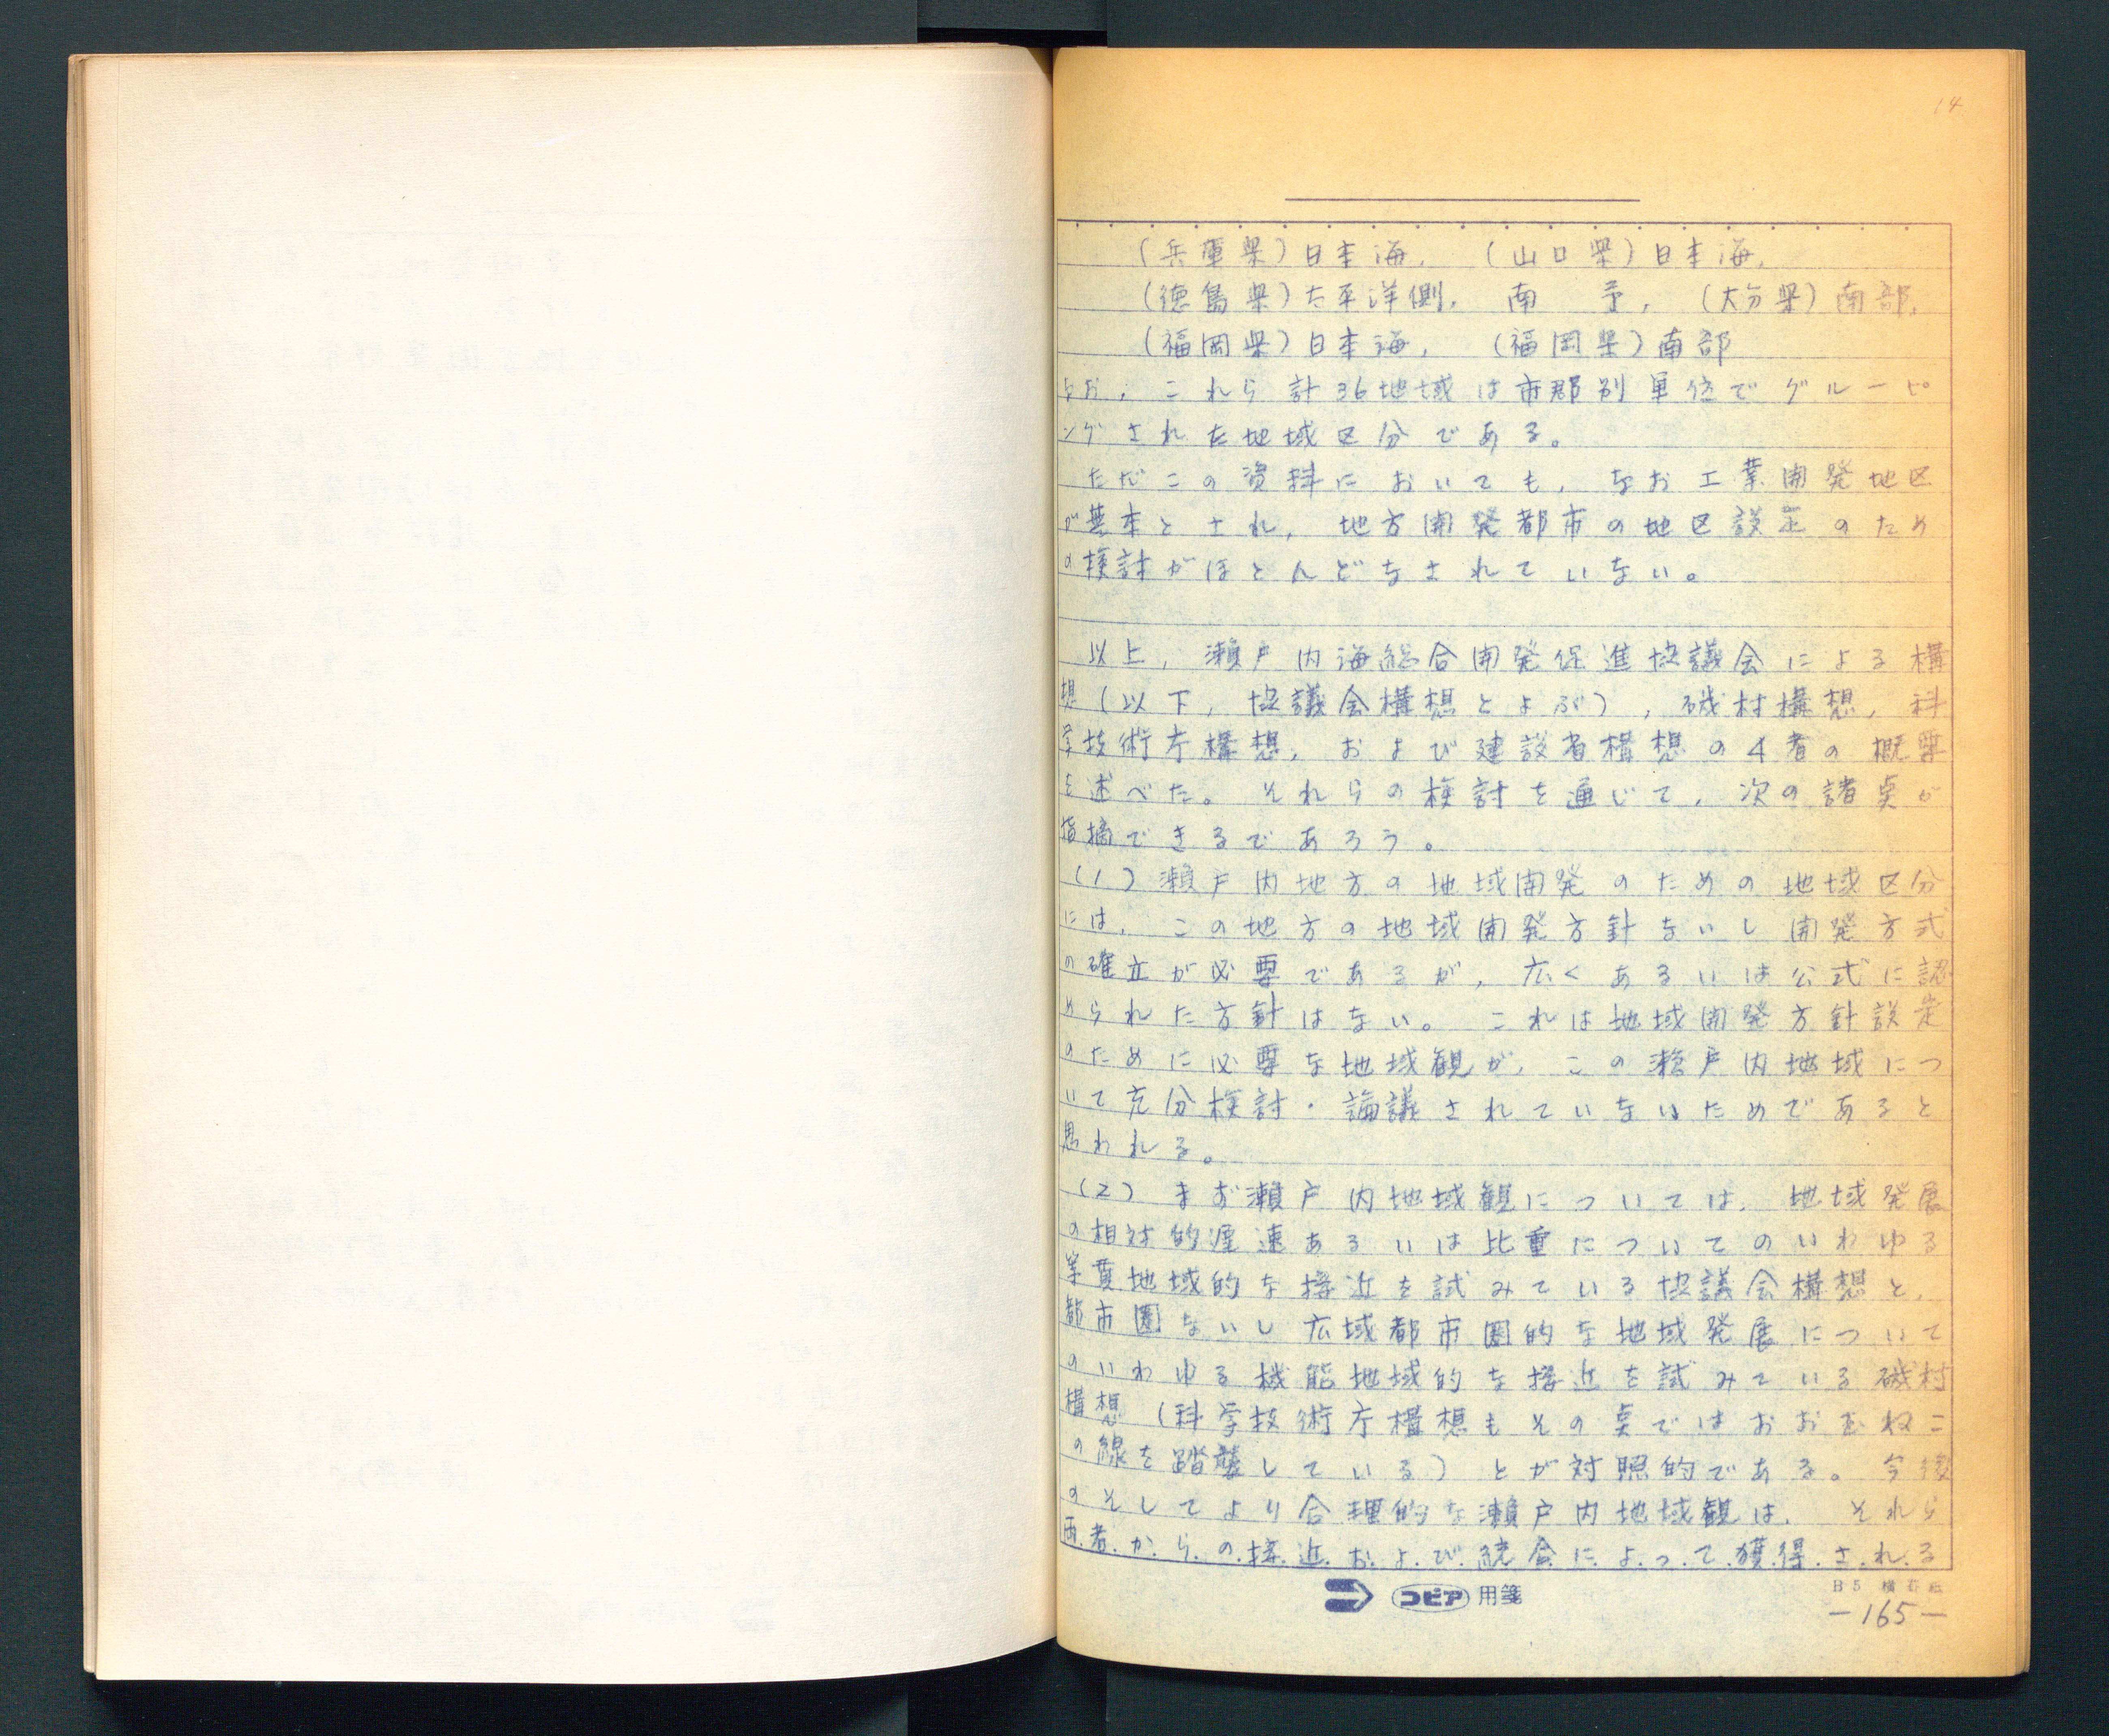 14
(兵庫県)日本海, (山口県)日本海,
(徳島県)太平洋側, 南 予, (大分県)南部,
(福岡県)日本海, (福岡県)南部
なお, これら計36地域は市郡別単位でグルーピ
ングされた地域区分である。
ただこの資料においても, なお工業開発地区
が基本とされ, 地方開発都市の地区設定のため
の検討がほとんどなされていない。
以上, 瀬戸内海総合開発促進協議会による構
想(以下, 協議会構想とよぶ), 磯村構想, 科
学技術庁構想, および建設省構想の4者の概要
を述べた。それらの検討を通じて, 次の諸点が
指摘できるであろう。
(1) 瀬戸内地方の地域開発のための地域区分
には, この地方の地域開発方針ないし開発方式
の確立が必要であるが, 広くあるいは公式に認
められた方針はない。これは地域開発方針設定
のために必要な地域観が, この瀬戸内地域につ
いて充分検討・論議されていないためであると
思われる。
(2) まず瀬戸内地域観については, 地域発展
の相対的遅速あるいは比重についてのいわゆる
等質地域的な接近を試みている協議会構想と,
都市圏ないし広域都市圏的な地域発展について
のいわゆる機能地域的な接近を試みている磯村
構想(科学技術庁構想もその点ではおおむねこ
の線を踏襲している)とが対照的である。今後
のそしてより合理的な瀬戸内地域観は, それら
両者からの接近および統合によって獲得される
コピア用箋
B5 横罫紙
—165—